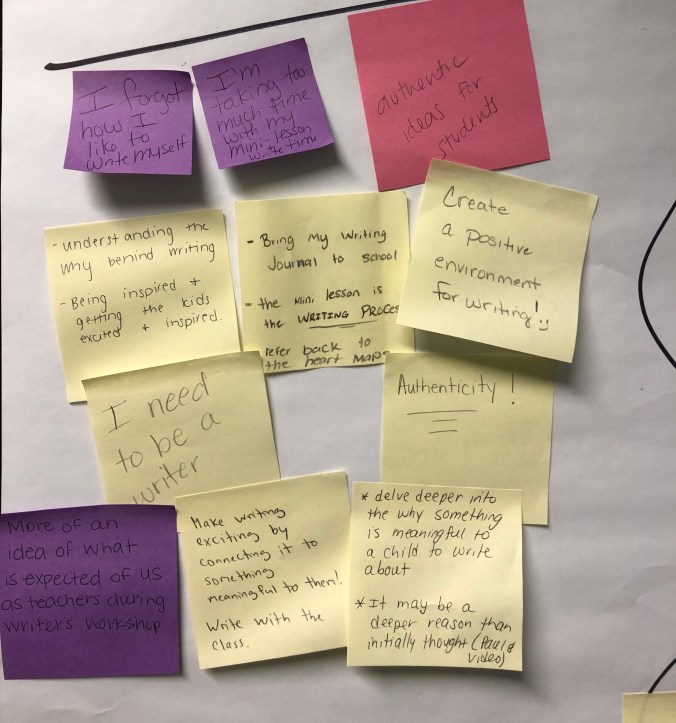 I forgot
how I
like to
write myself
I'm
taking too
much time
with my
mini-lesson
write time
authentic
ideas for
students
- understanding the
why behind writing
- Being inspired +
getting the kids
excited + inspired.
- Bring My Writing
Journal to school
- the Mini lesson is
the WRITING PROCES
refer back to
the heart maps
Create
a positive
environment
for writing!
I need
to be a
writer
Authenticity!
More of an
idea of what
is expected of us
as teachers during
writers workshop
Make writing
exciting by
connecting it to
something
meaningful to them!
Write with the
class.
* delve deeper into
the why something
is meaningful to
a child to write
about
* It may be a
deeper reason than
initially thought (Paul's
video)